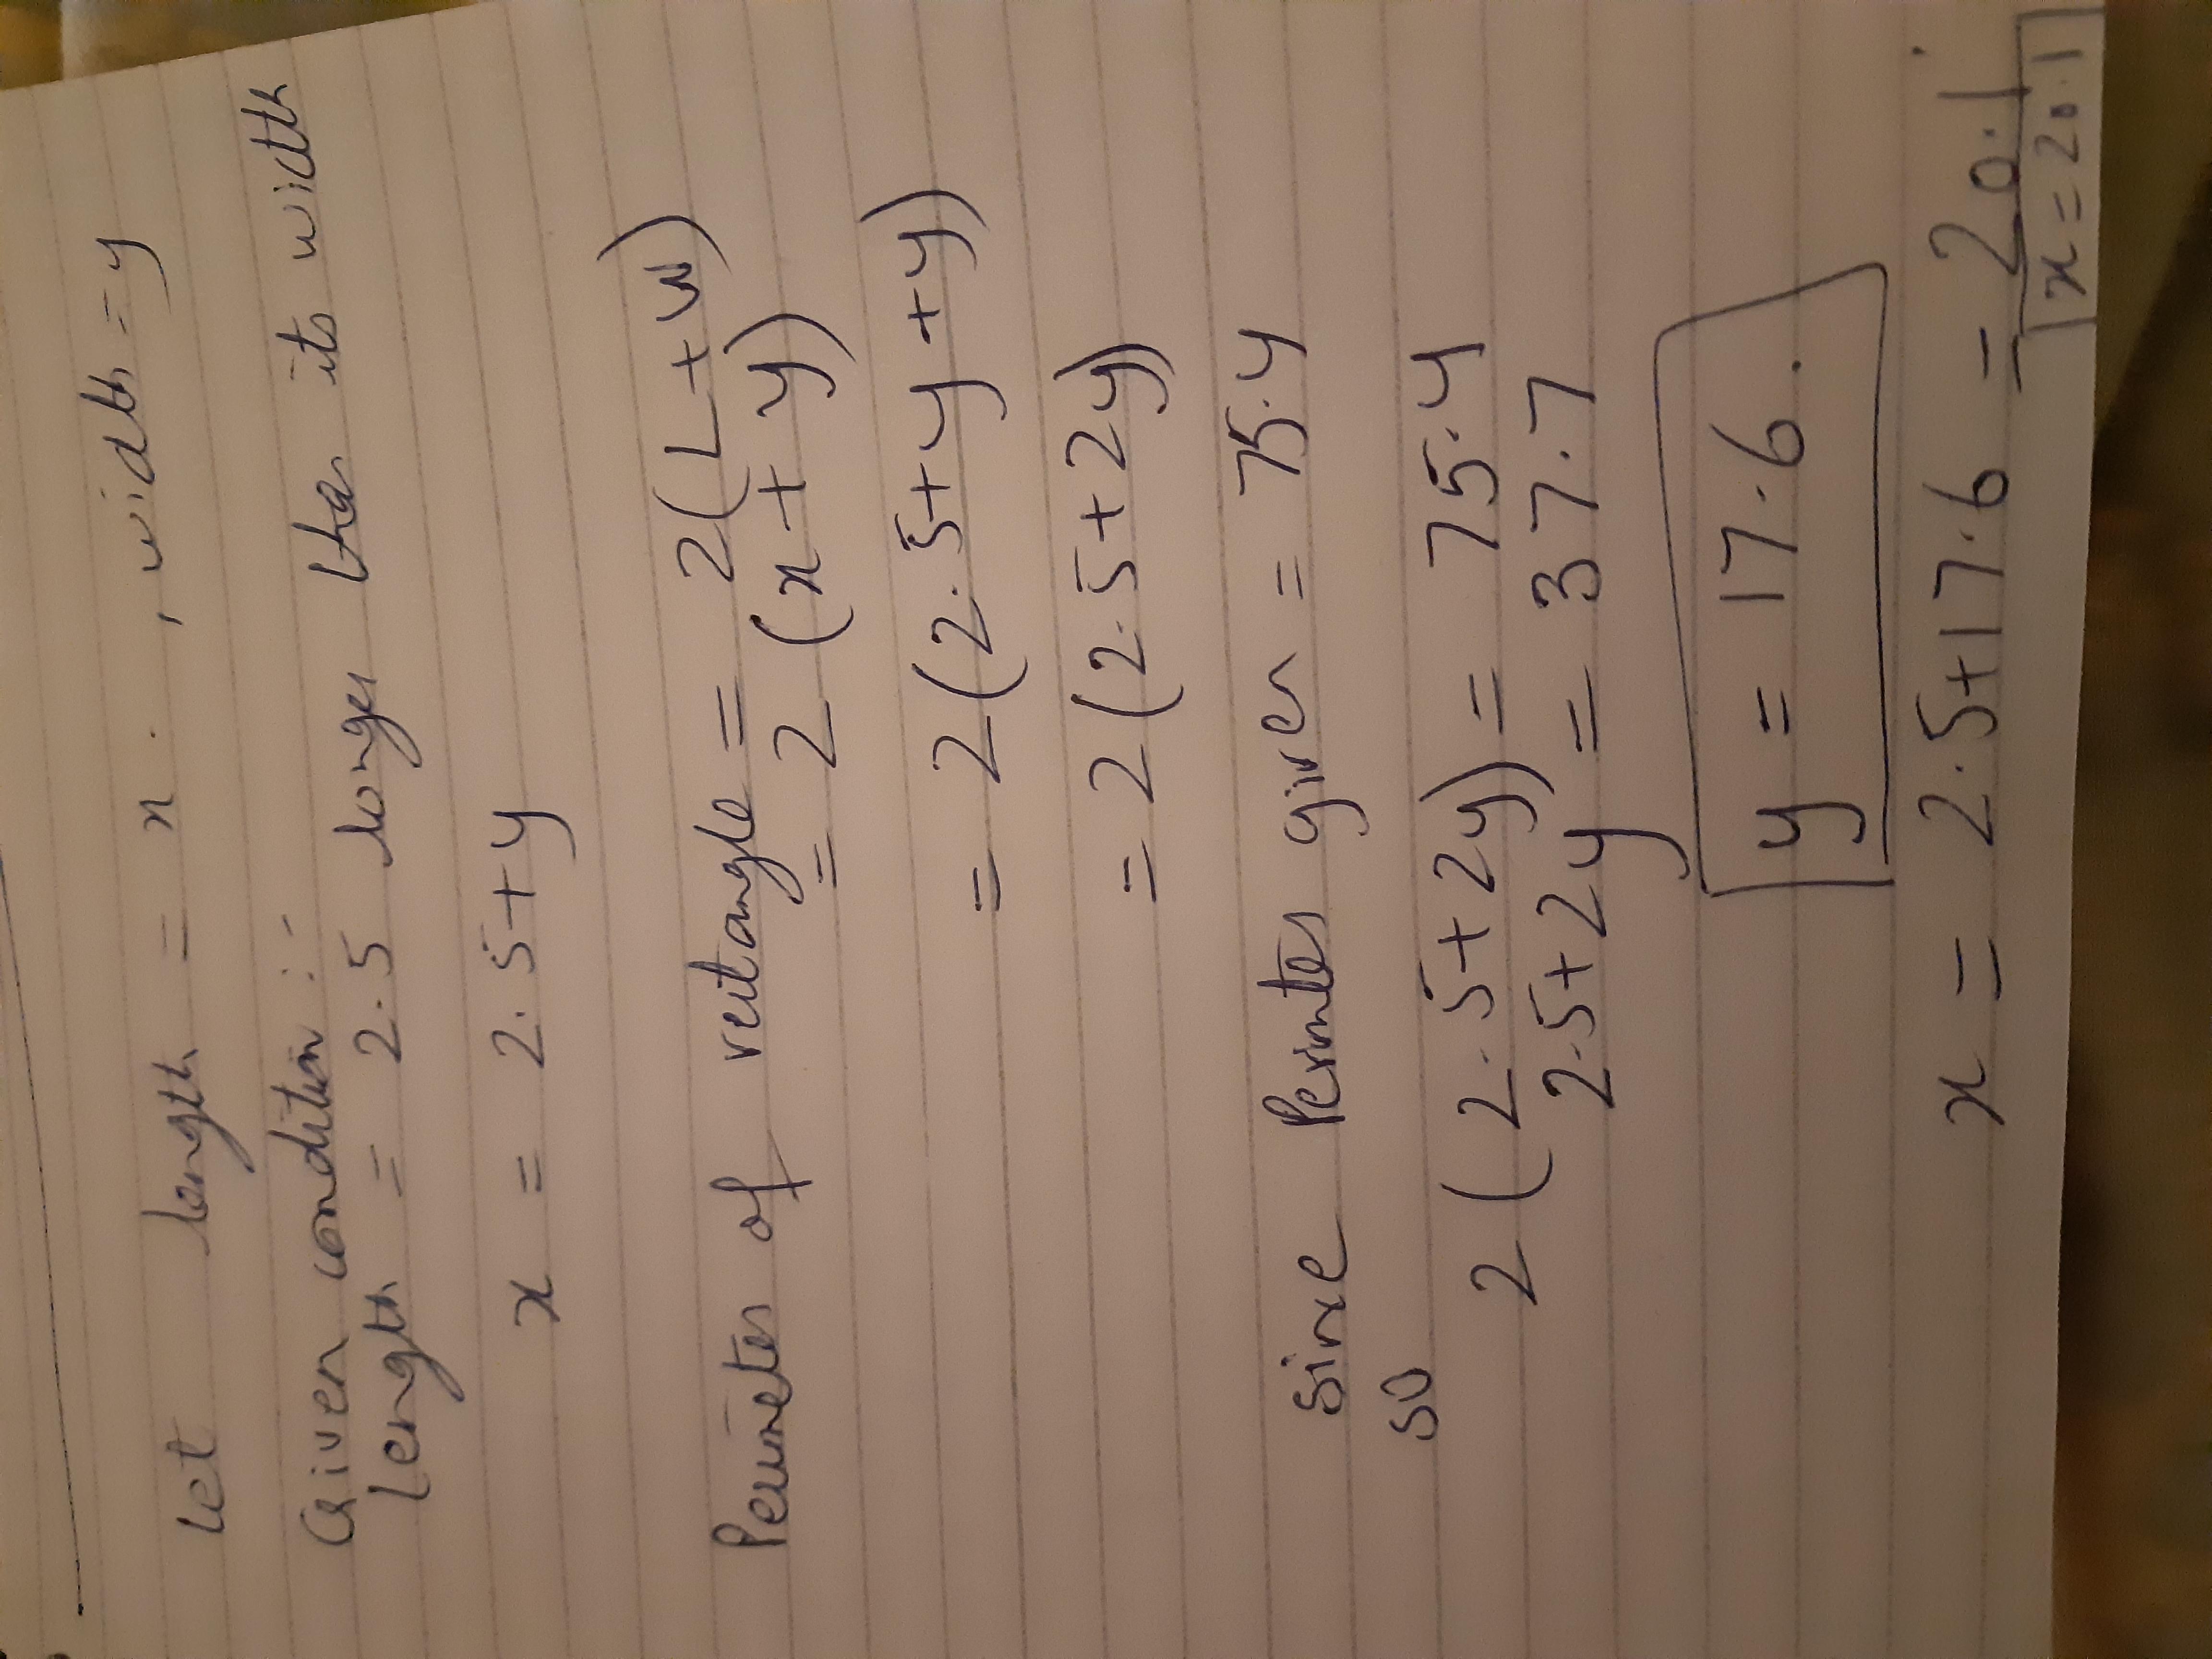 Let length = x . , width = y
Given condition :-
Length = 2.5 longer than its width
x = 2.5+y
Perimeter of rectangle = 2(L+W)
= 2 (x+y)
= 2(2.5+y+y)
= 2(2.5+2y)
Since Perimter given = 75.4
so
2(2.5+2y) = 75.4
2.5+2y = 37.7
y = 17.6.
x = 2.5+17.6 = 20.1
x = 20.1